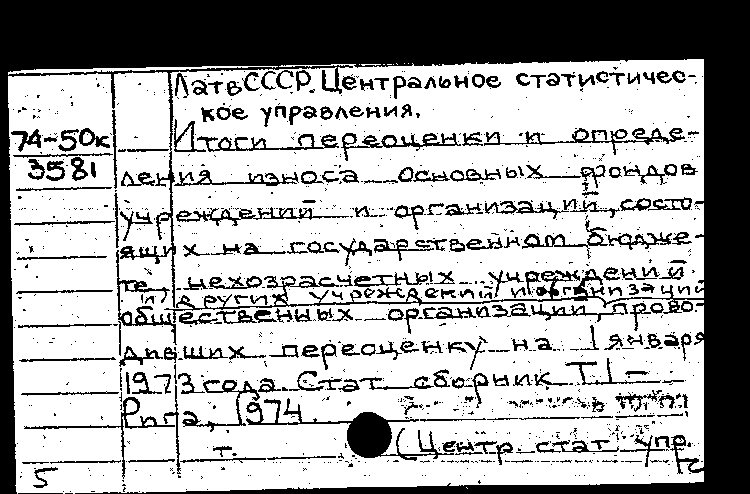 ЛатвСССР. Центральное статистичес-
кое управления.
74-50к
3581
Итоги переоценки и опреде-
ления износа основных фондов
учреждений и организаций, состо-
ящих на государственном бюдже-
те, нехозрасчетных учреждений
и других учреждений и организаций
общественных организаций, прово-
дивших переоценку на 1 января
1973 года. Стат. сборник Т.1 -
Рига, 1974.
т.
(Центр. стат. упр.
5